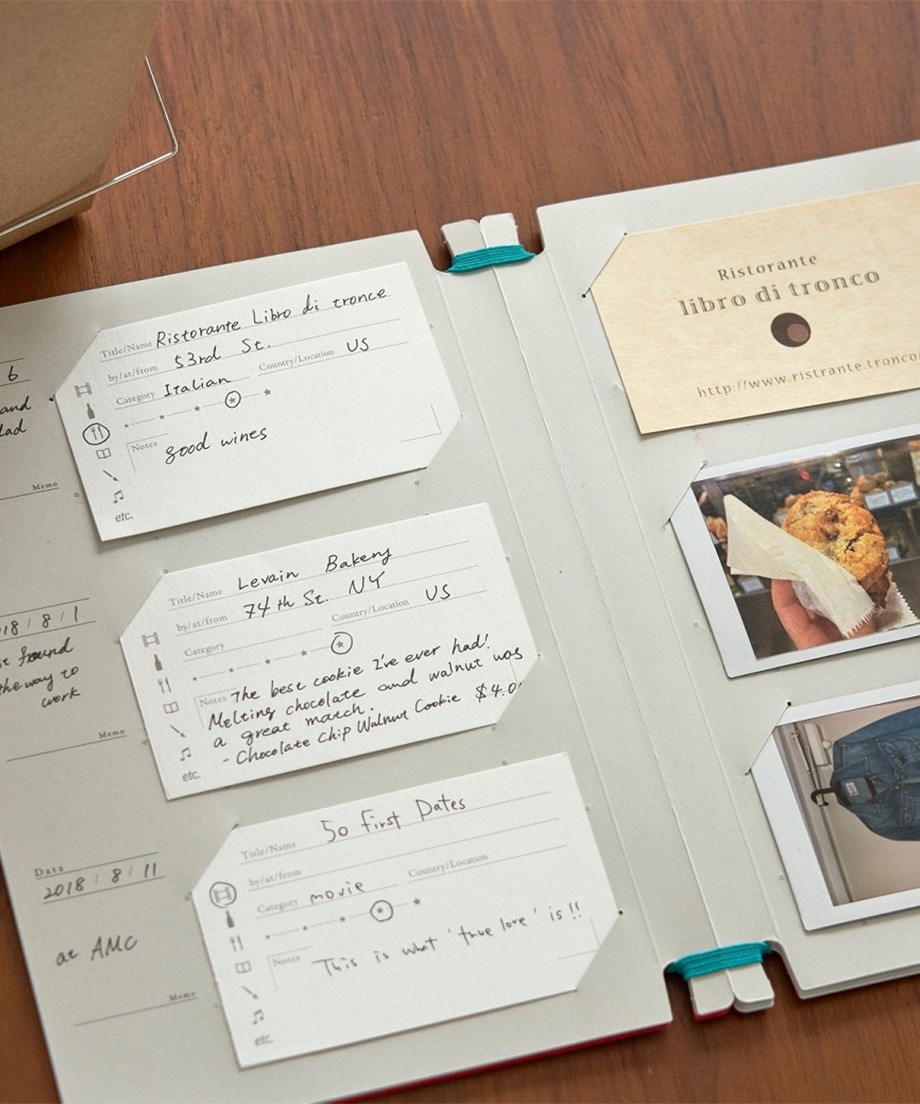 6
and
lad
Memo
Title/Name Ristorante Libro di tronce
by/at/from 53rd St.
Category Italian Country/Location US
Notes good wines
etc.
18 / 8 / 1
found
the way to
work
Memo
Title/Name Levain Bakery
by/at/from 74th St. NY
Category Country/Location US
Notes The best cookie I've ever had!
Melting chocolate and walnut was
a great match.
- Chocolate Chip Walnut Cookie $4.0
etc.
Data
2018 / 8 / 11
at AMC
Memo
Title/Name 50 First Dates
by/at/from
Category movie Country/Location
Notes This is what 'true love' is!!
etc.
Ristorante
libro di tronco
http://www.ristrante.tronco/